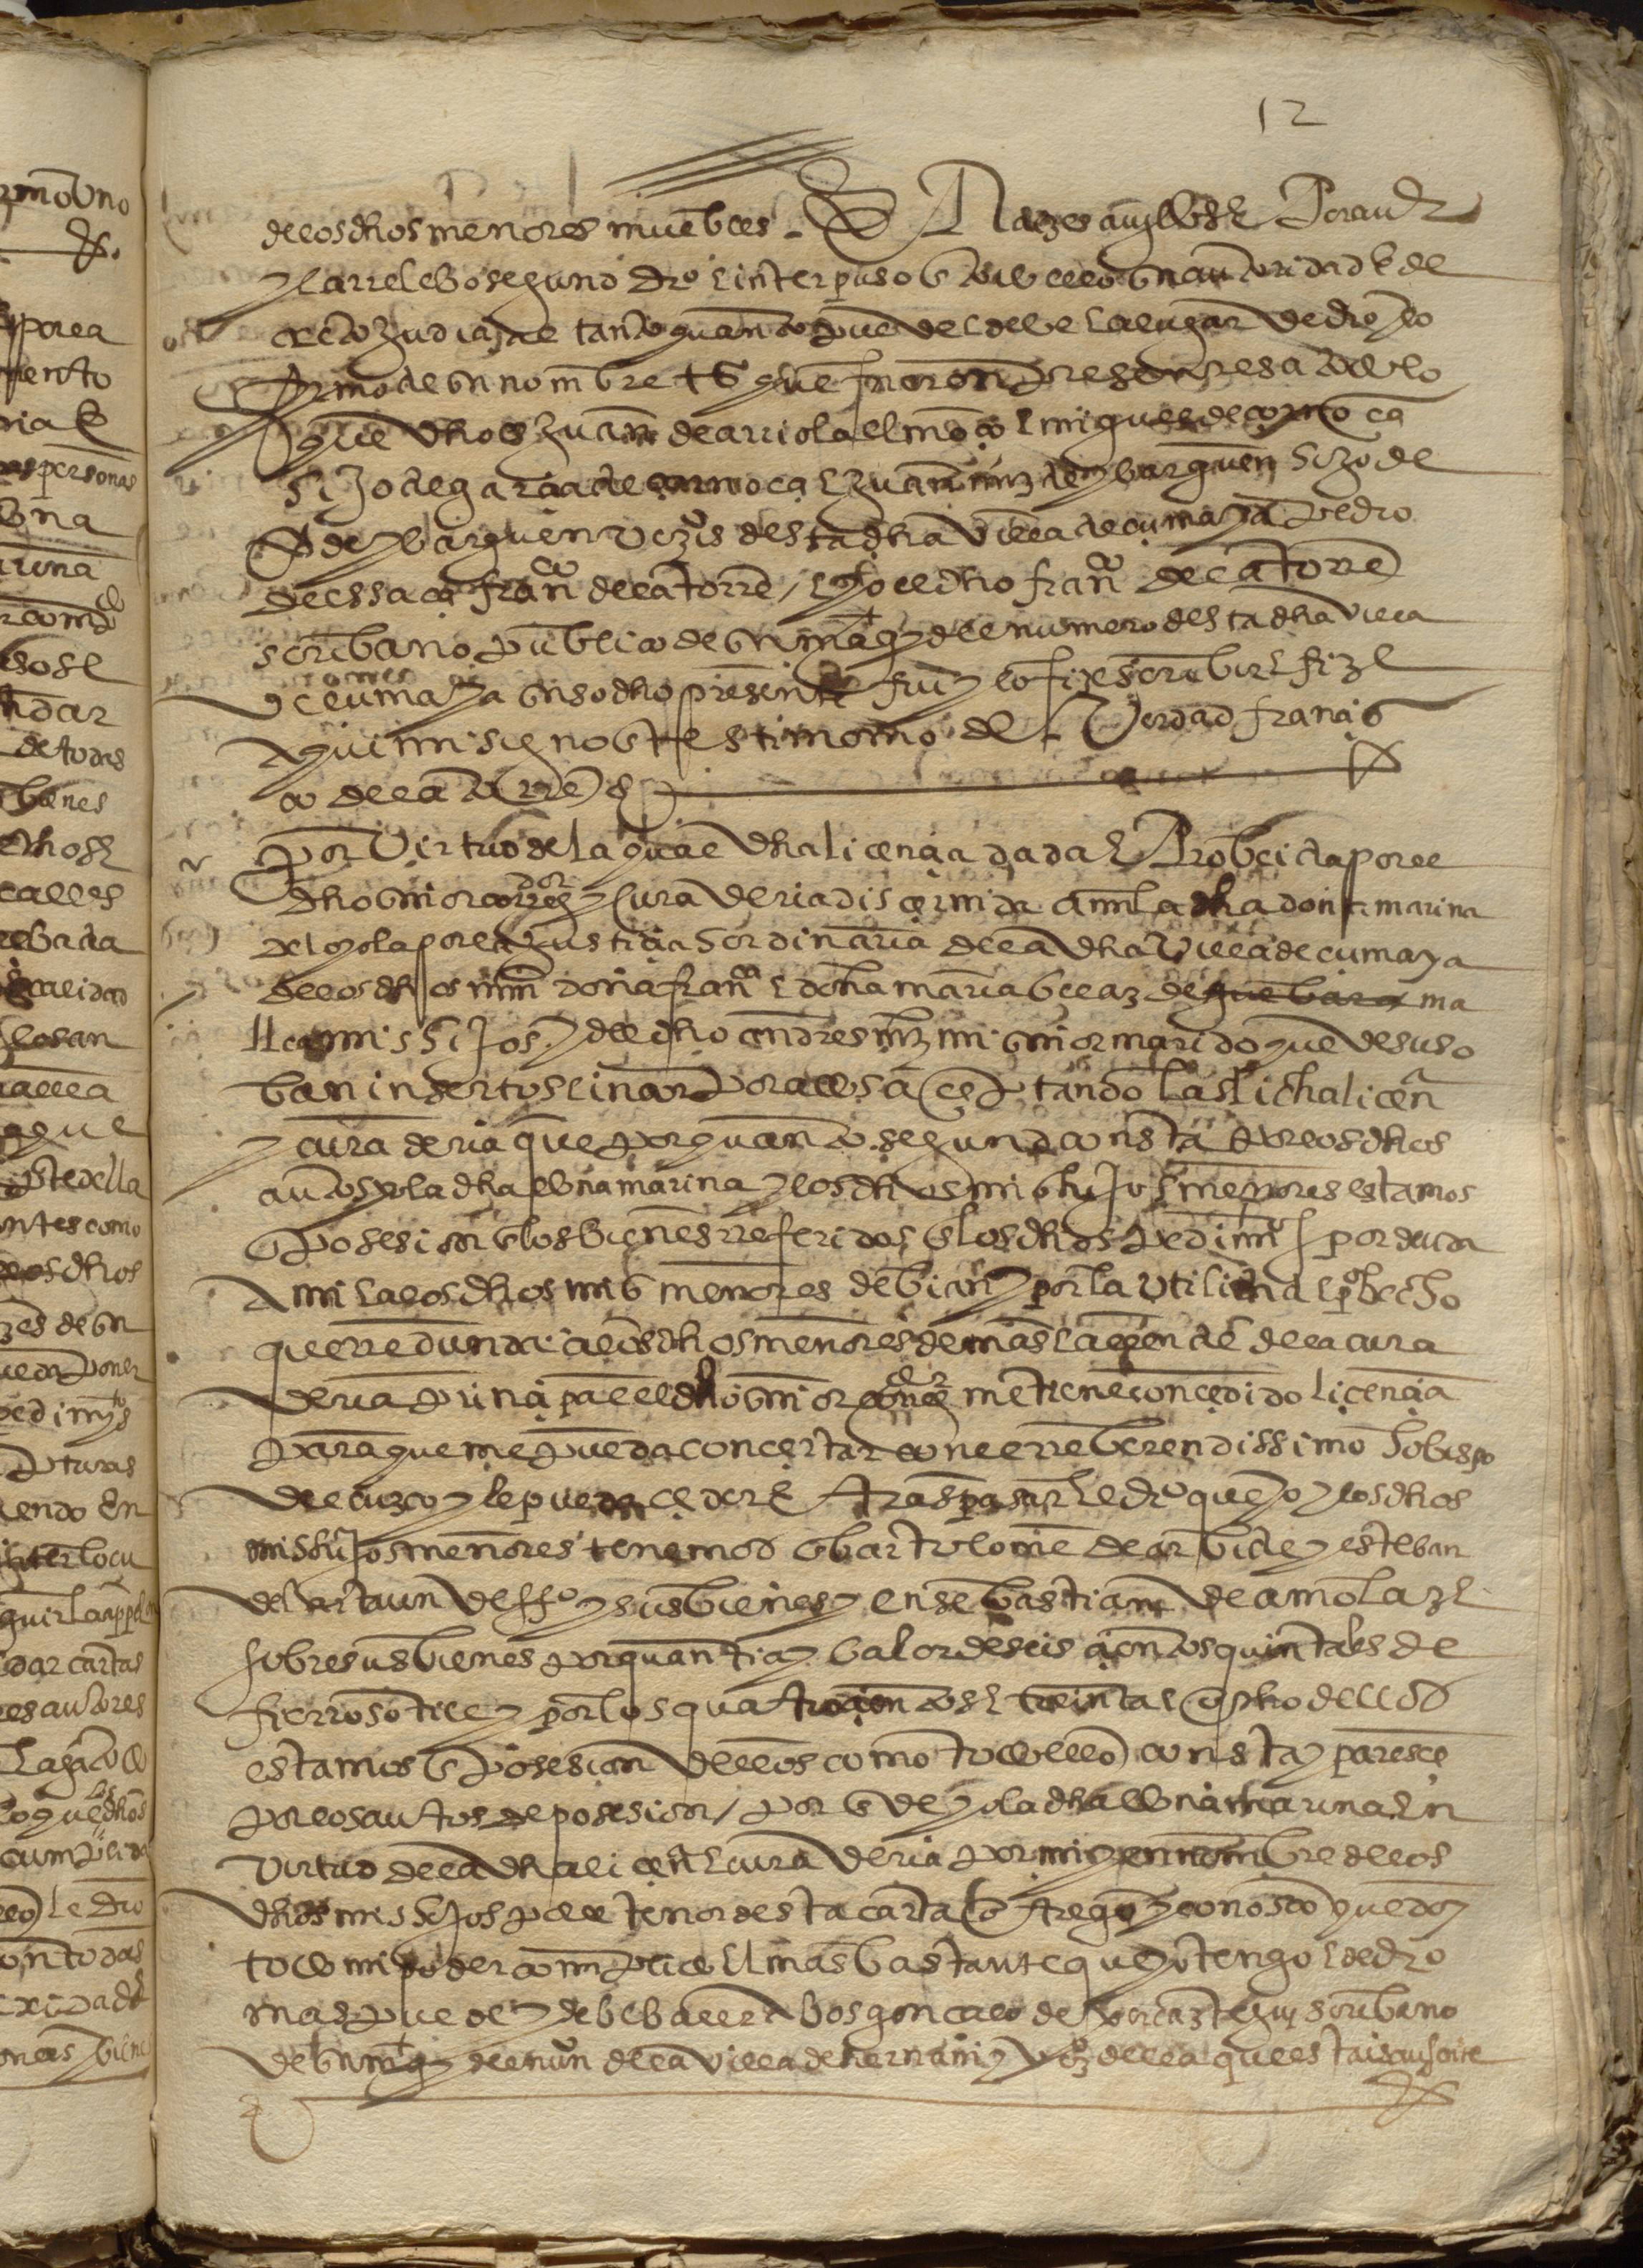 12
de los dhos menores muebles E Raizes auydos E Por auer
y la rrelebo segund dro E interpuso a todo ello su autoridad E de
creto judicial tanto quanto puede E debe E a lugar de dro y lo
firmo de su nombre tsº que fueron presentes a todo lo
que dho es Juan de arriola el moço E miguel de
hijo de garcia de E Juan miz de ybarguen hijo de
P de ybarguen vezºs desta dha villa de çumaya Pedro
de franco de la torre / E yo el dho franco de la torre
scribano publico de su magt y del numero desta dha villa
de çumaya en so dho presente fui y lo fize screbir E fize
aqui mi signo En testimonio de Verdad franis
co de la torre
Por Virtud de la qual dha licencia dada E Probeida por el
dho señor corregdor y curaderia discernida a mi la dha doña marina
de loyola por la Justicia hordinaria de la dha Villa de çumaya
de los dhos mis doña franca E doña maria velaz ma
llea mis hijos y del dho andres miz mi señor marido que de suso
ban insertos E incorporados açeptando la dicha licena
y curaderia que por quanto segund consta por los dhos
autos yo la dha doña marina y los dhos mis hijos menores estamos
En posesion En los bienes rreferidos En los dhos pedimis por deuda
a mi E a los dhos mis menores debian y por la utilidad E probecho
que rredunda a los dhos menores demas E allende de la cura
deria principal el dho señor corregdor me tiene concedido licencia
para que me pueda concertar con el rreberendissimo hobispo
del cuzco y le pueda ceder E traspasar E el dro que yo y los dhos
mis hijos menores tenemos En bartolome de arbide y esteban
de lartaun deffº y sus bienes y en sebastian de amolaz E
sobre sus bienes por quantia y balor de seis cientos quintales de
fierro sotil y por los quatrocientos E treinta E ocho dellos
estamos En posesion dellos como todo ello consta y paresce
por los autos de posesion / por En de yo la dha doña marina En
virtud de la dha licena E curaderia por mi y en nombre de los
dhos mis hijos por el tenor desta carta otorgo y conosco que doy
todo mi poder complido El mas bastante que yo tengo E de dro
mas puede y debe baler a bos gonçalo de scribano
de su magt y del nuº de la villa de hernani y vzº della que estais ausente